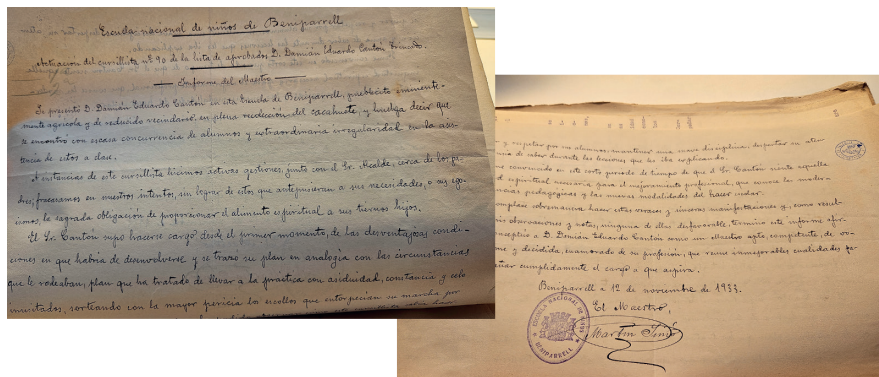 Escuela nacional de niños de Beniparrell
Actuación del cursillista nº 90 de la lista de aprobados, D. Damián Eduardo Cantón
Informe del Maestro
Se presentó D. Damián Eduardo Cantón en esta Escuela de Beniparrell, pueblecito eminente-
mente agrícola y de reducido vecindario, en plena recolección del cacahuete, y huelga decir que
se encontró con escasa concurrencia de alumnos y extraordinaria irregularidad en la asis-
tencia de estos a clase.
A instancias de este cursillista hicimos activas gestiones, junto con el Sr. Alcalde, cerca de los pa-
dres, fracasamos en nuestros intentos, sin lograr de estos que antepusieran a sus necesidades, o sus ego-
ismos, la sagrada obligación de proporcionar el alimento espiritual a sus tiernos hijos.
El Sr. Cantón supo hacerse cargo desde el primer momento, de las desventajosas condi-
ciones en que habría de desenvolverse y se trazó su plan en analogía con las circunstancias
que le rodeaban, plan que ha tratado de llevar a la práctica con asiduidad, constancia y celo
inusitados, sorteando con la mayor pericia los escollos que entorpecían su marcha por
y respetar por sus alumnos, mantener una suave disciplina, despertar su aten-
de saber durante las lecciones que les iba explicando.
convencido en este corto periodo de tiempo de que el Sr. Cantón siente aquella
espiritual necesaria para el mejoramiento profesional, que conoce las moder-
pedagógicas y las nuevas modalidades del hacer
sobremanera hacer estas veraces y sinceras manifestaciones y, como resul-
observaciones y notas, ninguna de ellas desfavorable, termino este informe
a D. Damián Eduardo Cantón como un Maestro apto, competente, de vo-
y decidida, enamorado de su profesión, que reune inmejorables cualidades pa-
cumplidamente el cargo a que aspira.
Beniparrell a 12 de noviembre de 1933.
El Maestro,
Martín
ESCUELA NACIONAL DE NIÑOS
BENIPARRELL